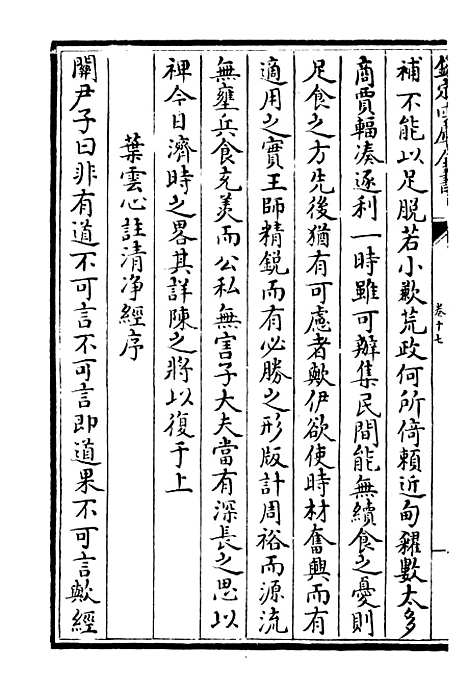 欽定四庫全書
卷十七
補不能以足脫若小歉荒政何所倚賴近甸糴數太多
商賈輻湊逐利一時雖可辦集民間能無續食之憂則
足食之方先後猶有可慮者歟伊欲使時材奮興而有
適用之實王師精銳而有必勝之形版計周裕而源流
無壅兵食充羡而公私無害子大夫當有深長之思以
裨今日濟時之畧其詳陳之將以復于上
葉雲心註清净經序
關尹子曰非有道不可言不可言即道果不可言歟經